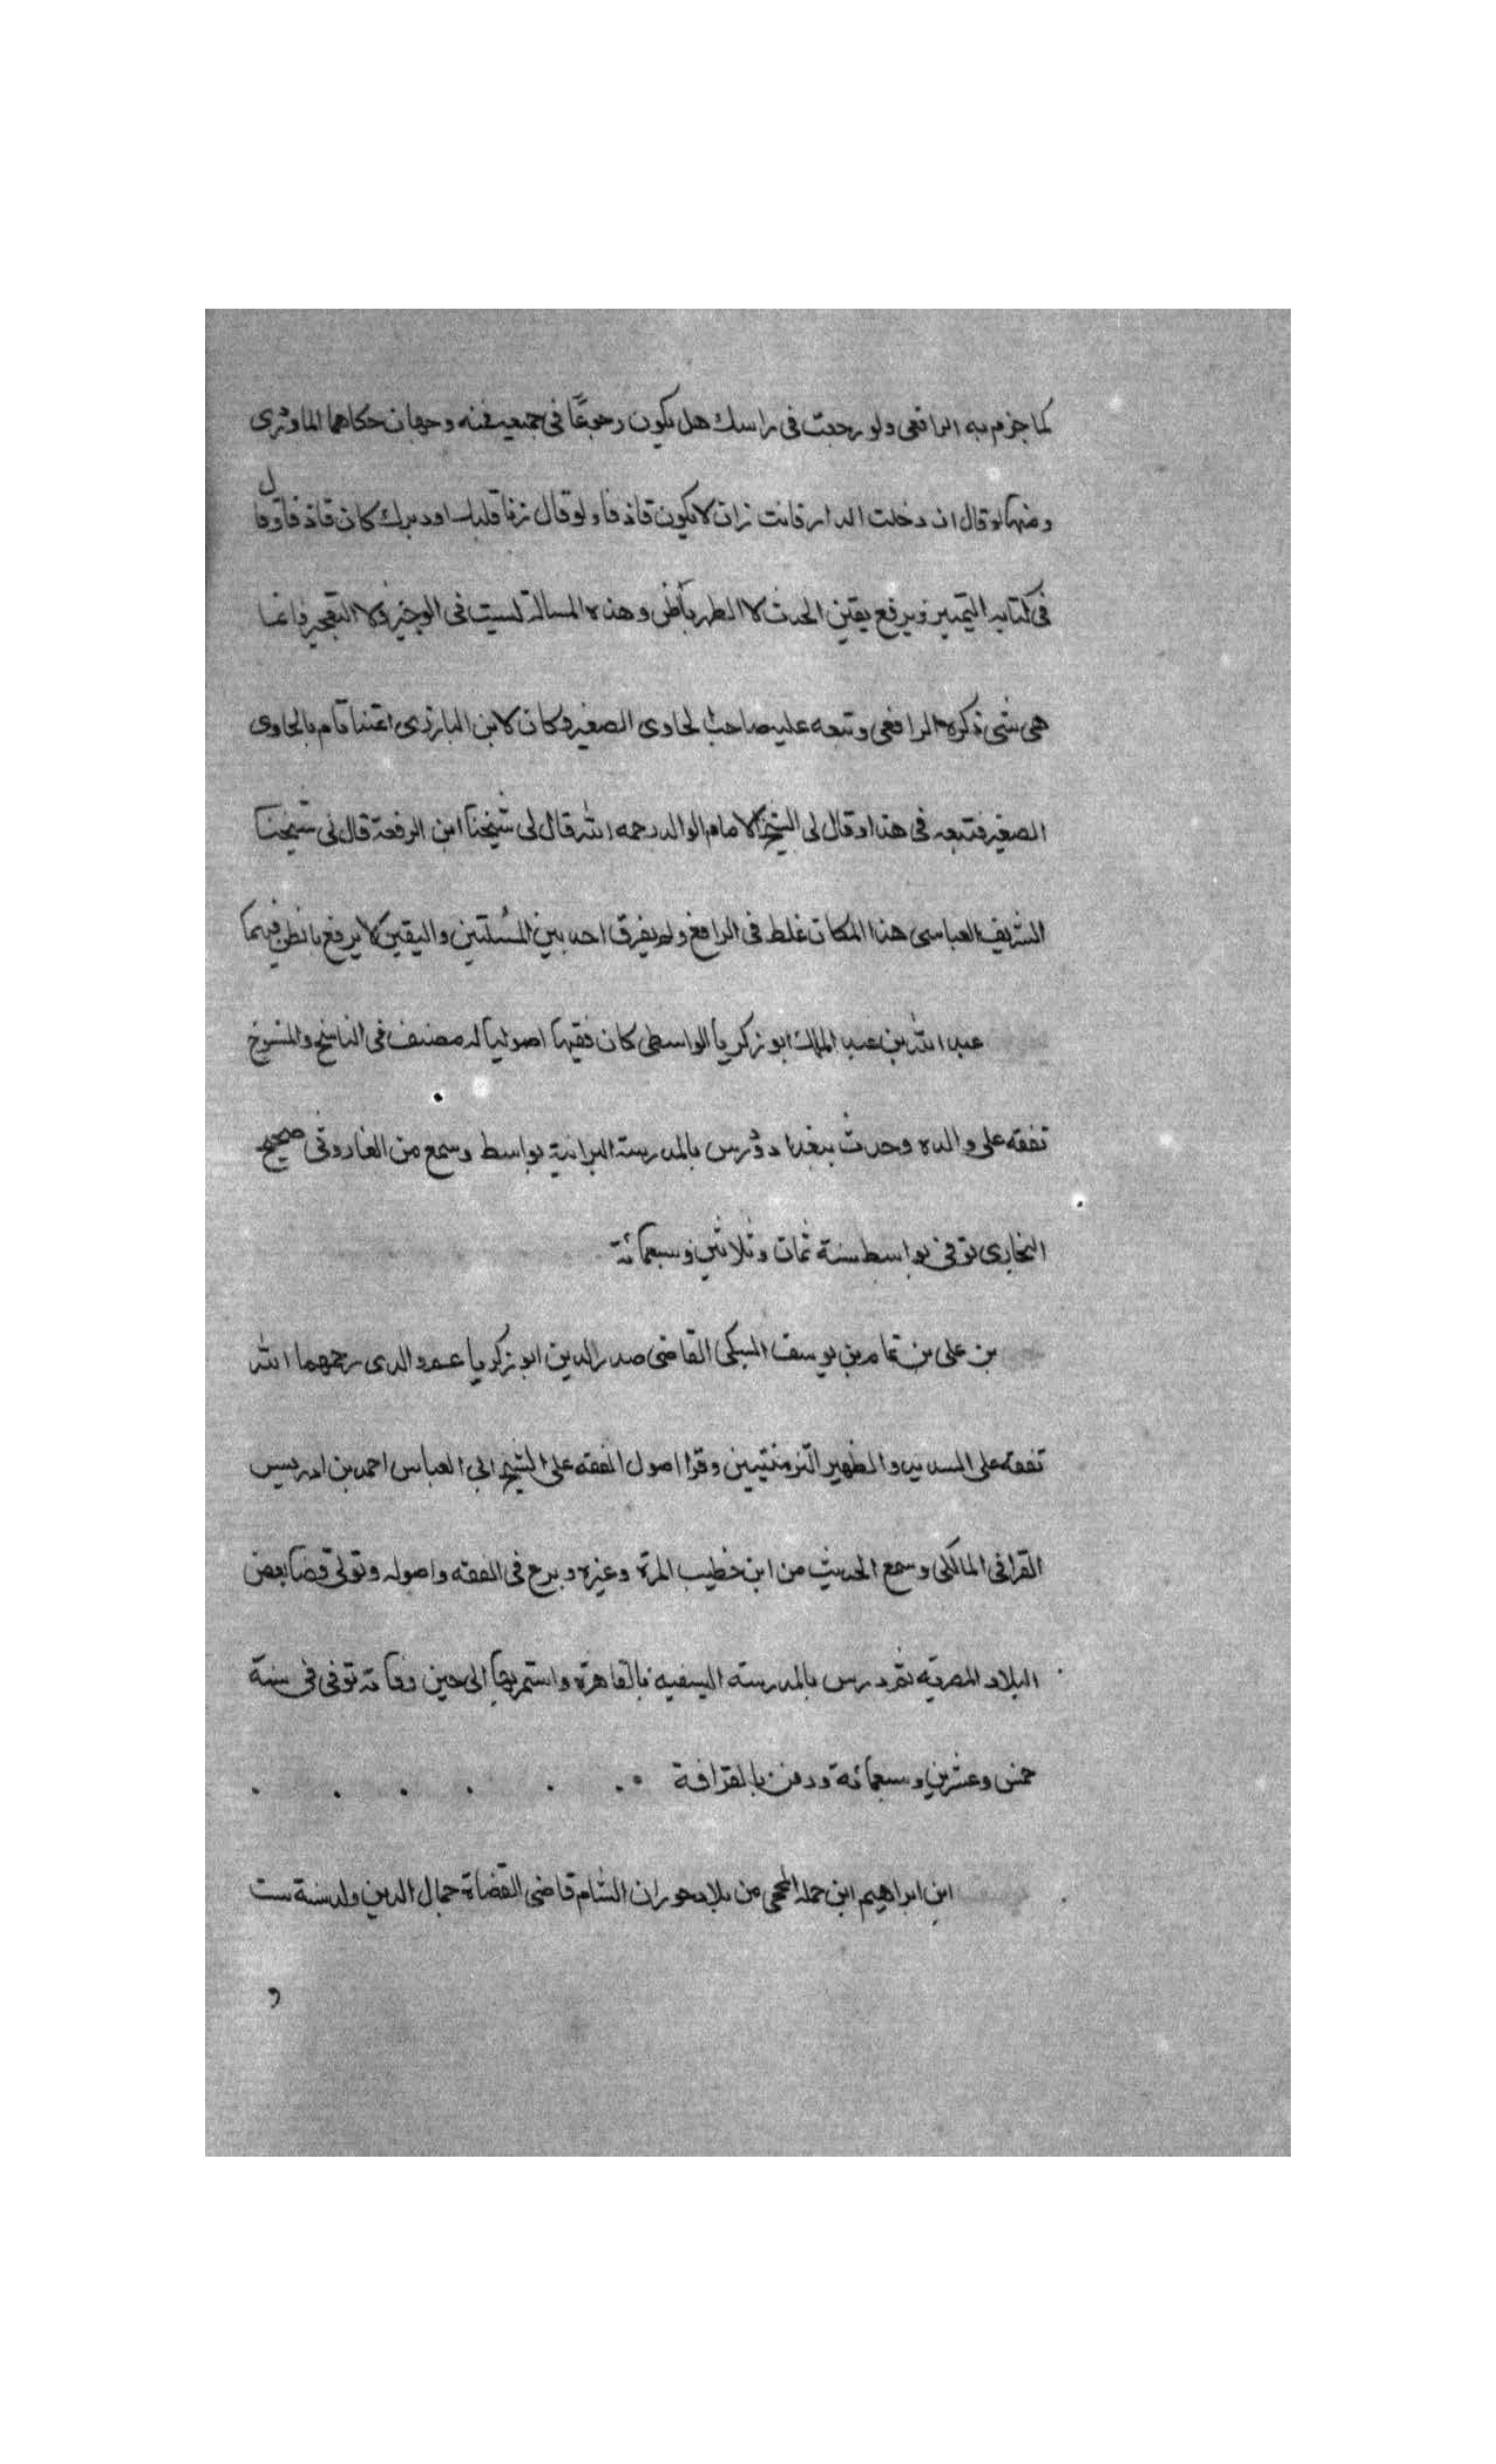 كما جزم به الرافعى ولو رجعت فى راسك هل يكون رجوعًا فى جميعه فيه وجهان حكاهما الماوردى
ومنها لو قال ان دخلت الدار فانت زان لا يكون قاذفا ولو قال زنا قلبك او دبرك كان قاذفا وقال
فى كتابه التمييز ويرفع يقين الحدث لا الطهر بالظن وهذه المسالة ليست فى الوجيز ولا التعجيز وانما
هى شى ذكره الرافعى وتبعه عليه صاحب الحاوى الصغير وكان لابن البارزى اعتنا تام بالحاوى
الصغير فتبعه فى هذا وقال لى الشيخ الامام الوالد رحمه الله قال لى شيخنا ابن الرفعة قال لى شيخنا
الشريف العباسى هذا المكان غلط فى الرافعى ولم يفرق احد بين المسلتين واليقين لا يرفع بالظن فيهما
عبد الله بن عبد الملك ابو زكريا الواسطى كان فقيها اصوليا له مصنف فى الناسخ والمنسوخ
تفقه على والده وحدث ببغداد ودرس بالمدرسة البرانية بواسط وسمع من الفاروثى صحيح
البخارى توفى بواسط سنة ثمان وثلاثين وسبعمائة
بن على بن تمام بن يوسف السبكى القاضى صدر الدين ابو زكريا عم والدى رحمهما الله
تفقه على السديد والظهير التزمنتيين وقرا اصول الفقه على الشيخ ابى العباس احمد بن ادريس
القرافى المالكى وسمع الحديث من ابن خطيب المزة وغيره وبرع فى الفقه واصوله وتولى قضا بعض
البلاد المصريه ثم درس بالمدرسته السيفيه بالقاهرة واستمر بها الى حين وفاته توفى فى سنة
خمس وعشرين وسبعمائة ودفن بالقرافة
ابن ابراهيم ابن جملة المحجى من بلاد حوران الشام قاضى القضاة جمال الدين ولد سنة ست